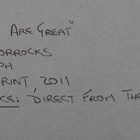 Are Great"
orrocks
ph
rint, 2011
ce: Direct From The